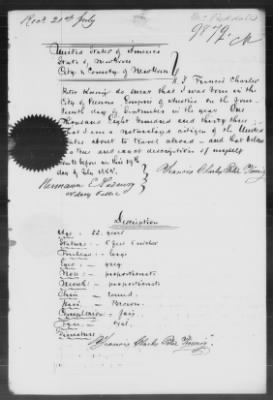 Rec'd 21st July
9879.
United States of America
State of New York
City & County of New York
I, Francis Charles
Peter do swear that I was born in the
City of Vienna Empire of Austria on the
day of September in the year One
Thousand Eight Hundred and thirty three
that I am a naturalized citizen of the United
States about to travel abroad - and that below
is a true and exact description of myself
Sworn before me this 19th
day of July
Notary Public
Francis Charles Peter
Description
Age - years
Stature - 5 feet inches
Forehead - large
Eyes - grey
Nose - proportionate
Mouth - proportionate
Chin - round
Hair - Brown
Complexion - fair
Face - oval
Signature
Francis Charles Peter